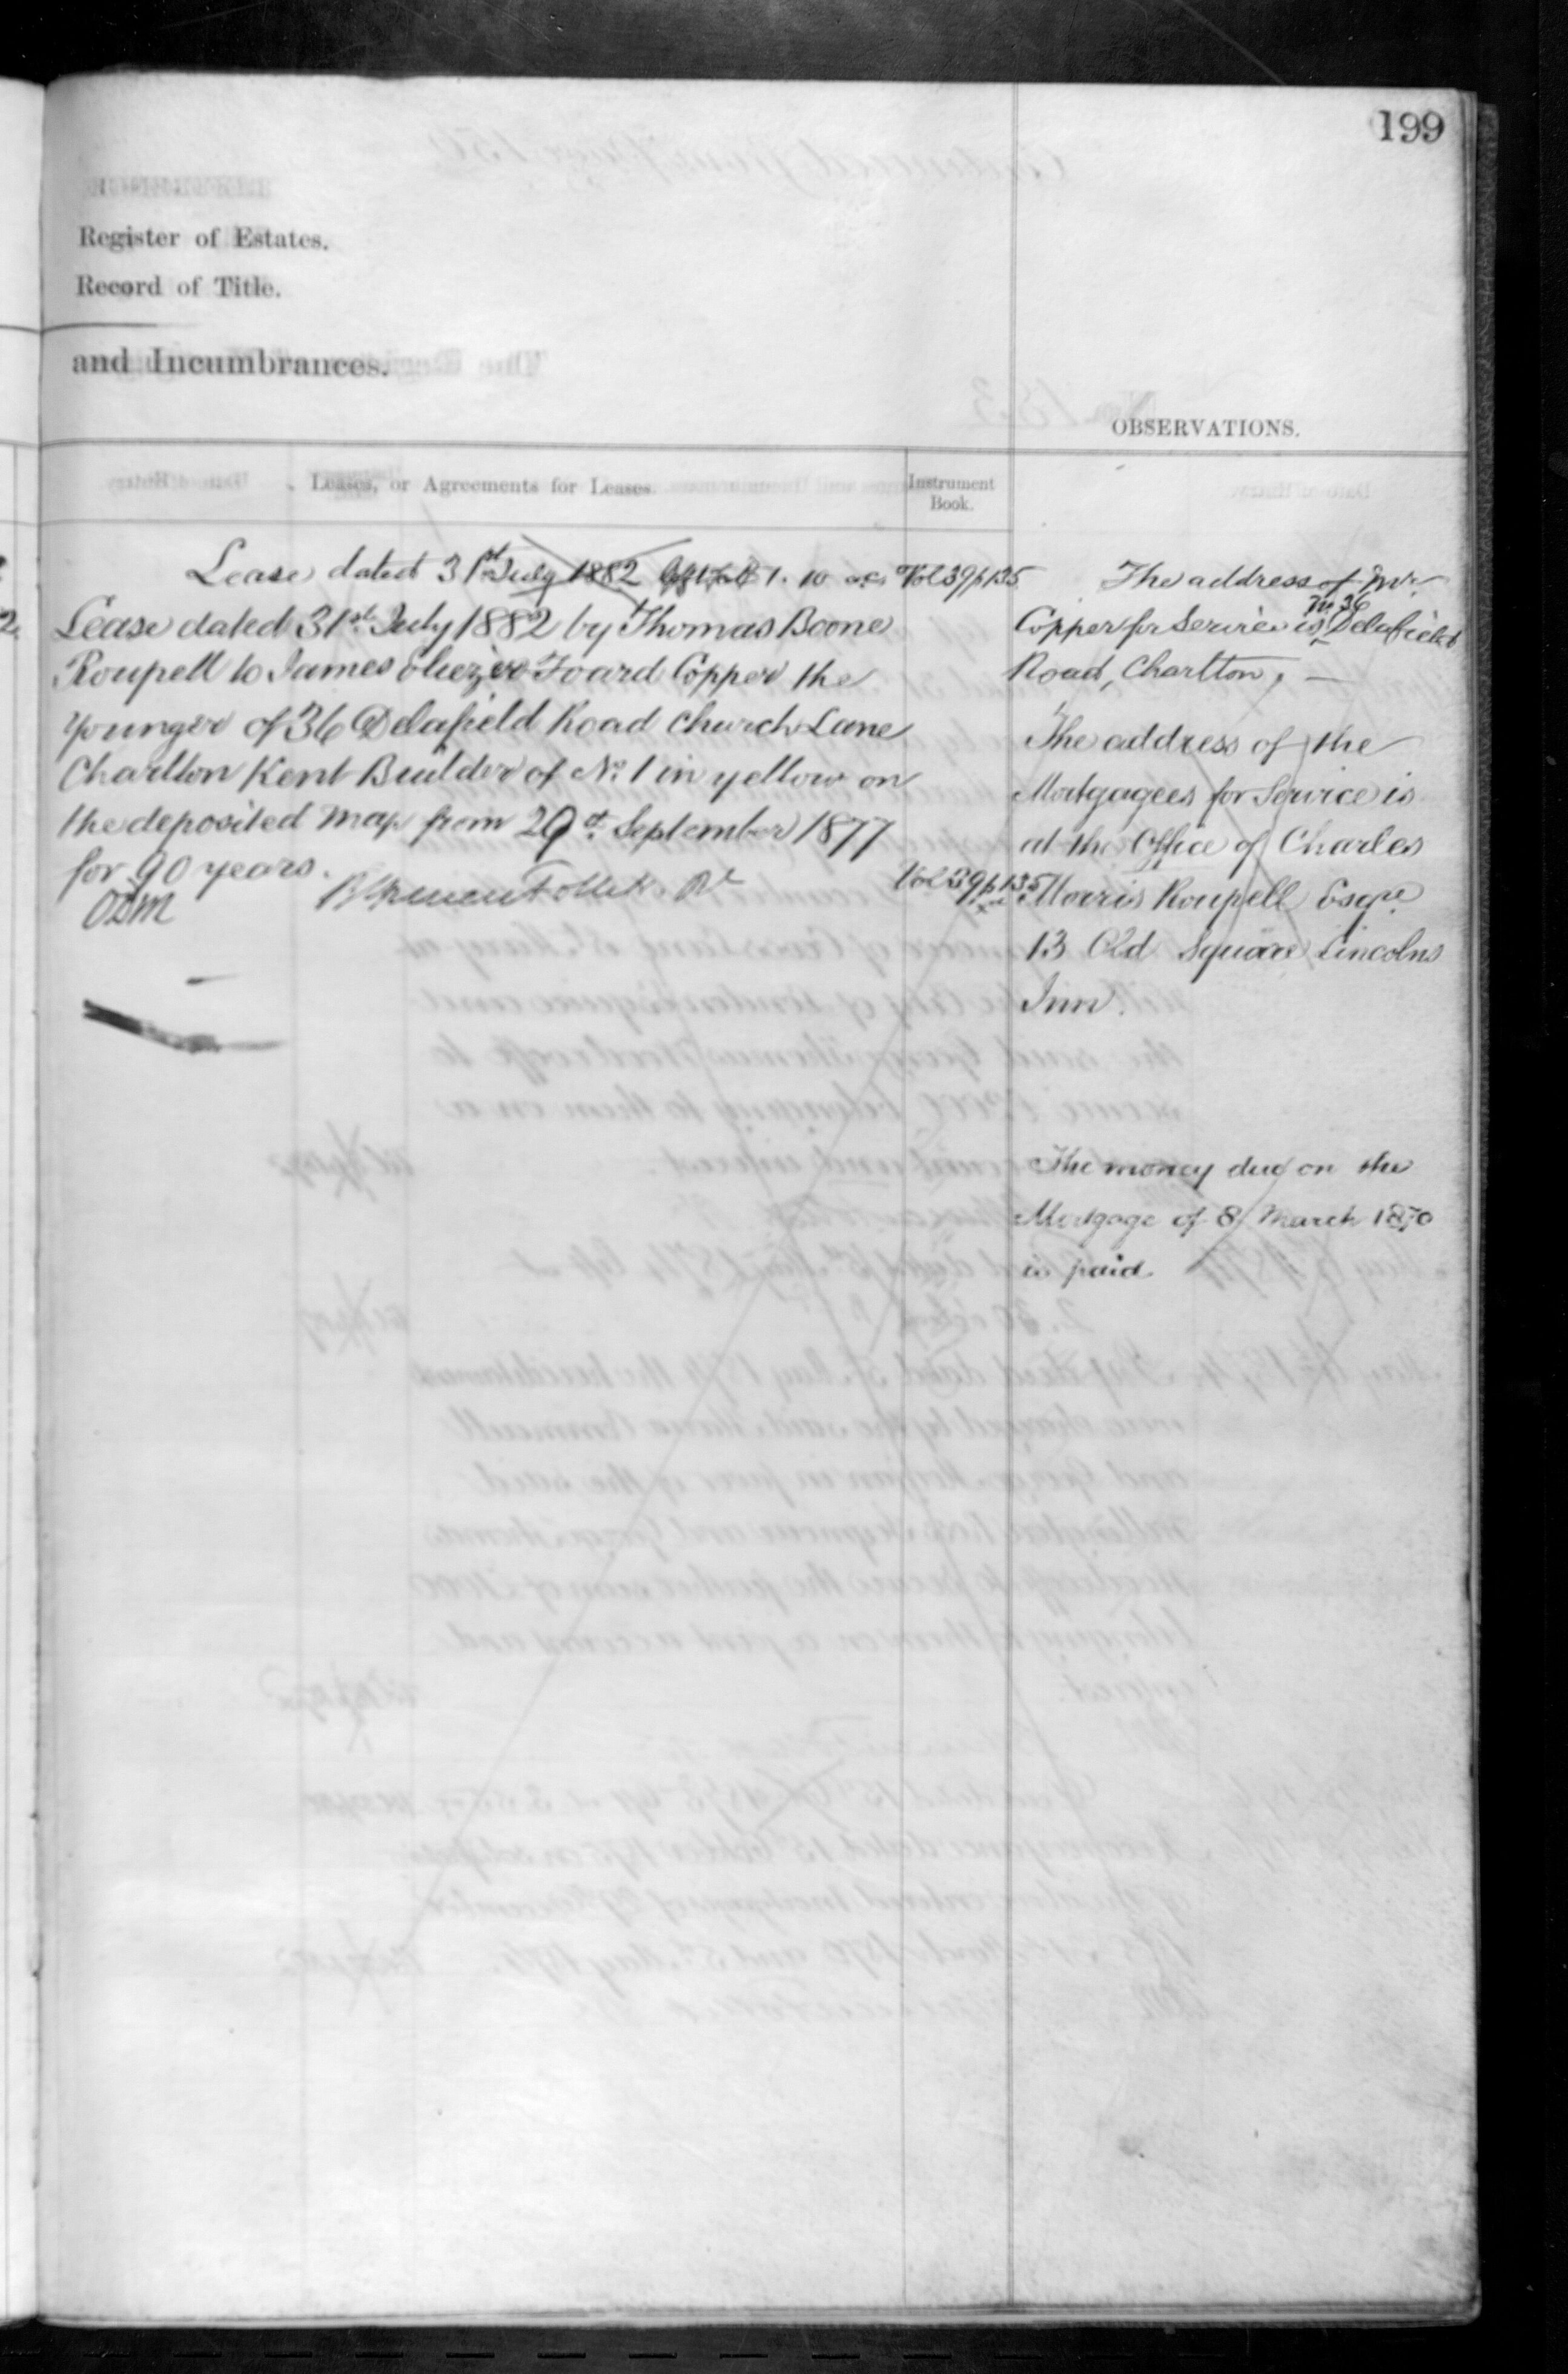 199
Register of Estates.
Record of Title.
and Incumbrances.
OBSERVATIONS.
Leases, or Agreements for Leases.
Instrument
Book.
Lease dated 31st July 1882 1. 10 Vol 39 p 135
Lease dated 31st July 1882 by Thomas Boone
Roupell to James Eliezer Foard Copper the
younger of 36 Delafield Road Church Lane
Charlton Kent Builder of No. 1 in yellow on
the deposited Map from 29th September 1877
for 90 years.
Vol 39 p 135
The address of Mr
No 36
Copper for Service is Delafield
Road, Charlton, —
The address of the
Mortgagees for Service is
at the Office of Charles
Morris Roupell Esqre
13 Old Square Lincolns
Inn.
The money due on the
Mortgage of 8 March 1870
is paid